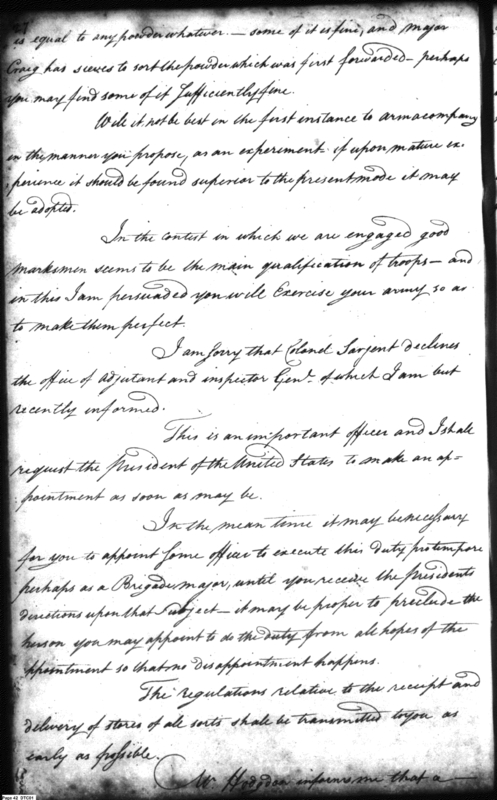 is equal to any powder whatever — some of it is fine, and major
Craig has sieves to sort the powder which was first forwarded — perhaps
you may find some of it sufficiently fine.
Will it not be best in the first instance to arm a company
in the manner you propose, as an experiment. if upon mature ex-
perience it should be found superior to the present mode it may
be adopted.
In the contest in which we are engaged good
marksmen seems to be the main qualification of troops — and
in this I am persuaded you will Exercise your army so as
to make them perfect.
I am sorry that Colonel Sargent declines
the office of adjutant and inspector Genl. of which I am but
recently informed.
This is an important officer and I shall
request the President of the United States to make an ap-
pointment as soon as may be.
In the mean time it may be necessary
for you to appoint some officer to execute this duty protempore
perhaps as a Brigade major, until you receive the Presidents
directions upon that subject — it may be proper to preclude the
person you may appoint to do the duty from all hopes of the
appointment so that no disappointment happens.
The regulations relative to the receipt and
delivery of stores of all sorts shall be transmitted to you as
early as possible.
Mr Hodgdon informs me that a
Page 42 DTC01